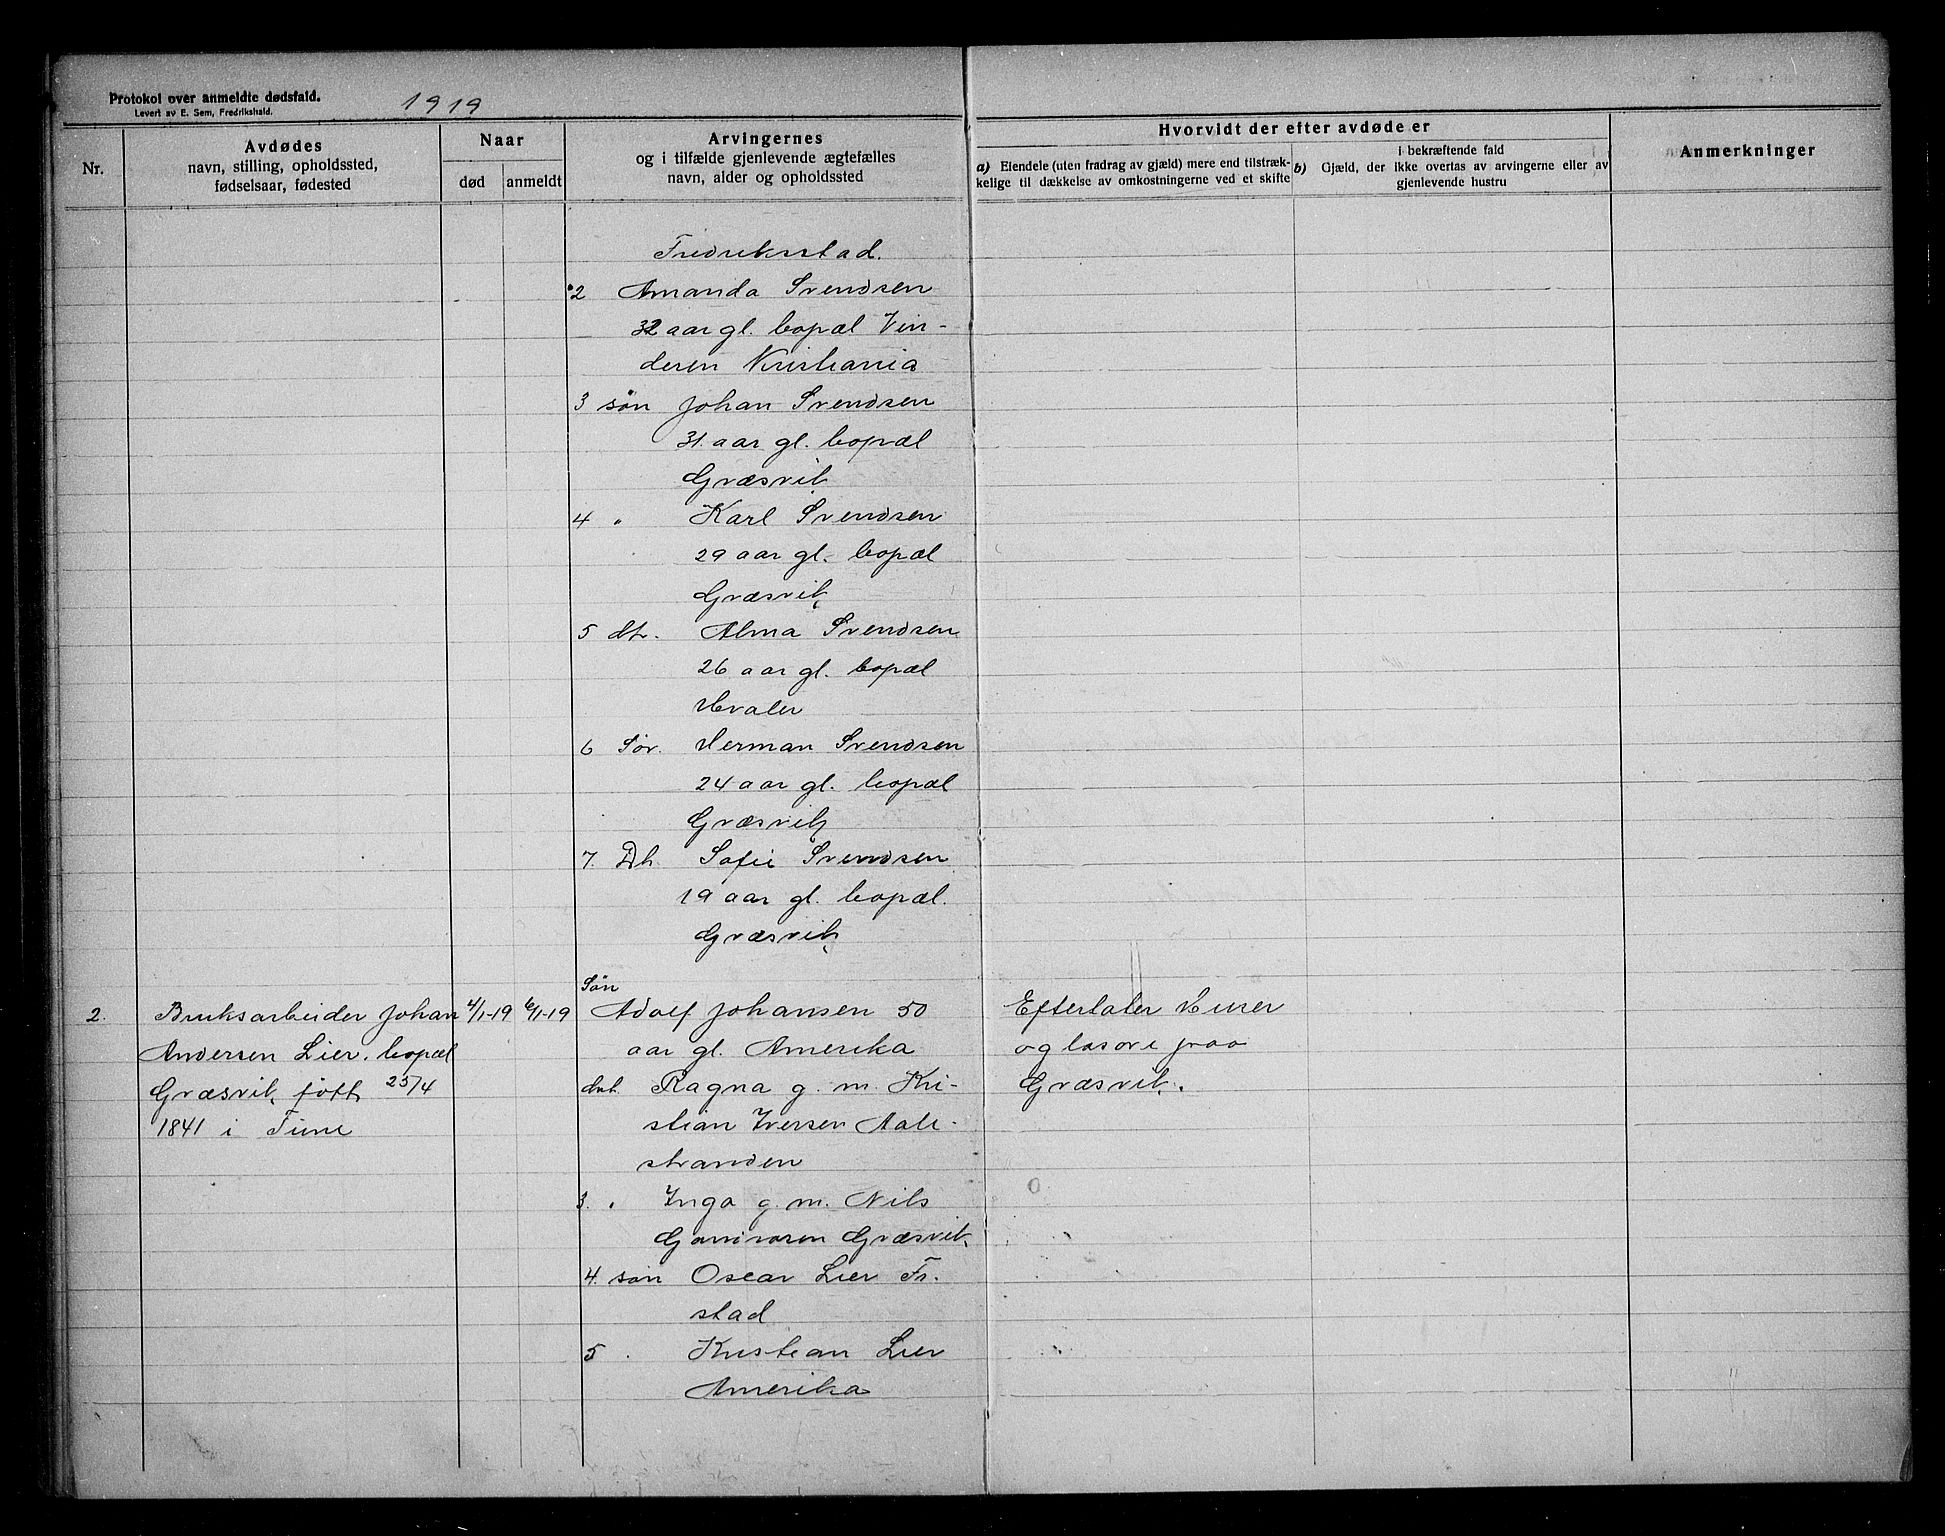 Protokol over anmeldte dødsfald.
Levert av E. Sem, Fredrikshald.
1919
Nr.
Avdødes
navn, stilling, opholdssted,
fødselsaar, fødested
Naar
død
anmeldt
Arvingernes
og i tilfælde gjenlevende ægtefælles
navn, alder og opholdssted
Hvorvidt der efter avdøde er
a) Eiendele (uten fradrag av gjæld) mere end tilstræk-
kelige til dækkelse av omkostningerne ved et skifte
i bekræftende fald
b) Gjæld, der ikke overtas av arvingerne eller av
gjenlevende hustru
Anmerkninger
Fredriksstad.
2 Amanda Svendsen
32 aar gl. bopæl Vin-
deren Kristiania
3 søn Johan Svendsen
31. aar gl. bopæl
Græsvik
4 " Karl Svendsen
29 aar gl. bopæl
Græsvik
5 dtr. Alma Svendsen
26 aar gl. bopæl
Hvaler
6 Søn. Herman Svendsen
24 aar gl. bopæl
Græsvik
7. Dtr. Sofie Svendsen
19 aar gl. bopæl.
Græsvik
2.
Bruksarbeider Johan
Andersen Lier. bopæl
Græsvik født 25/4
1841 i Tune
4/1-19
6/1-19
Søn
Adolf Johansen 50
aar gl. Amerika
dat. Ragna g. m. Kri-
stian Iversen Aale-
stranden
3. " Inga g. m. Nils
Græsvik
4. søn Oscar Lier Fr.
stad
5 " Kristian Lier
Amerika
Efterlater Huser
og løsøre paa
Græsvik.